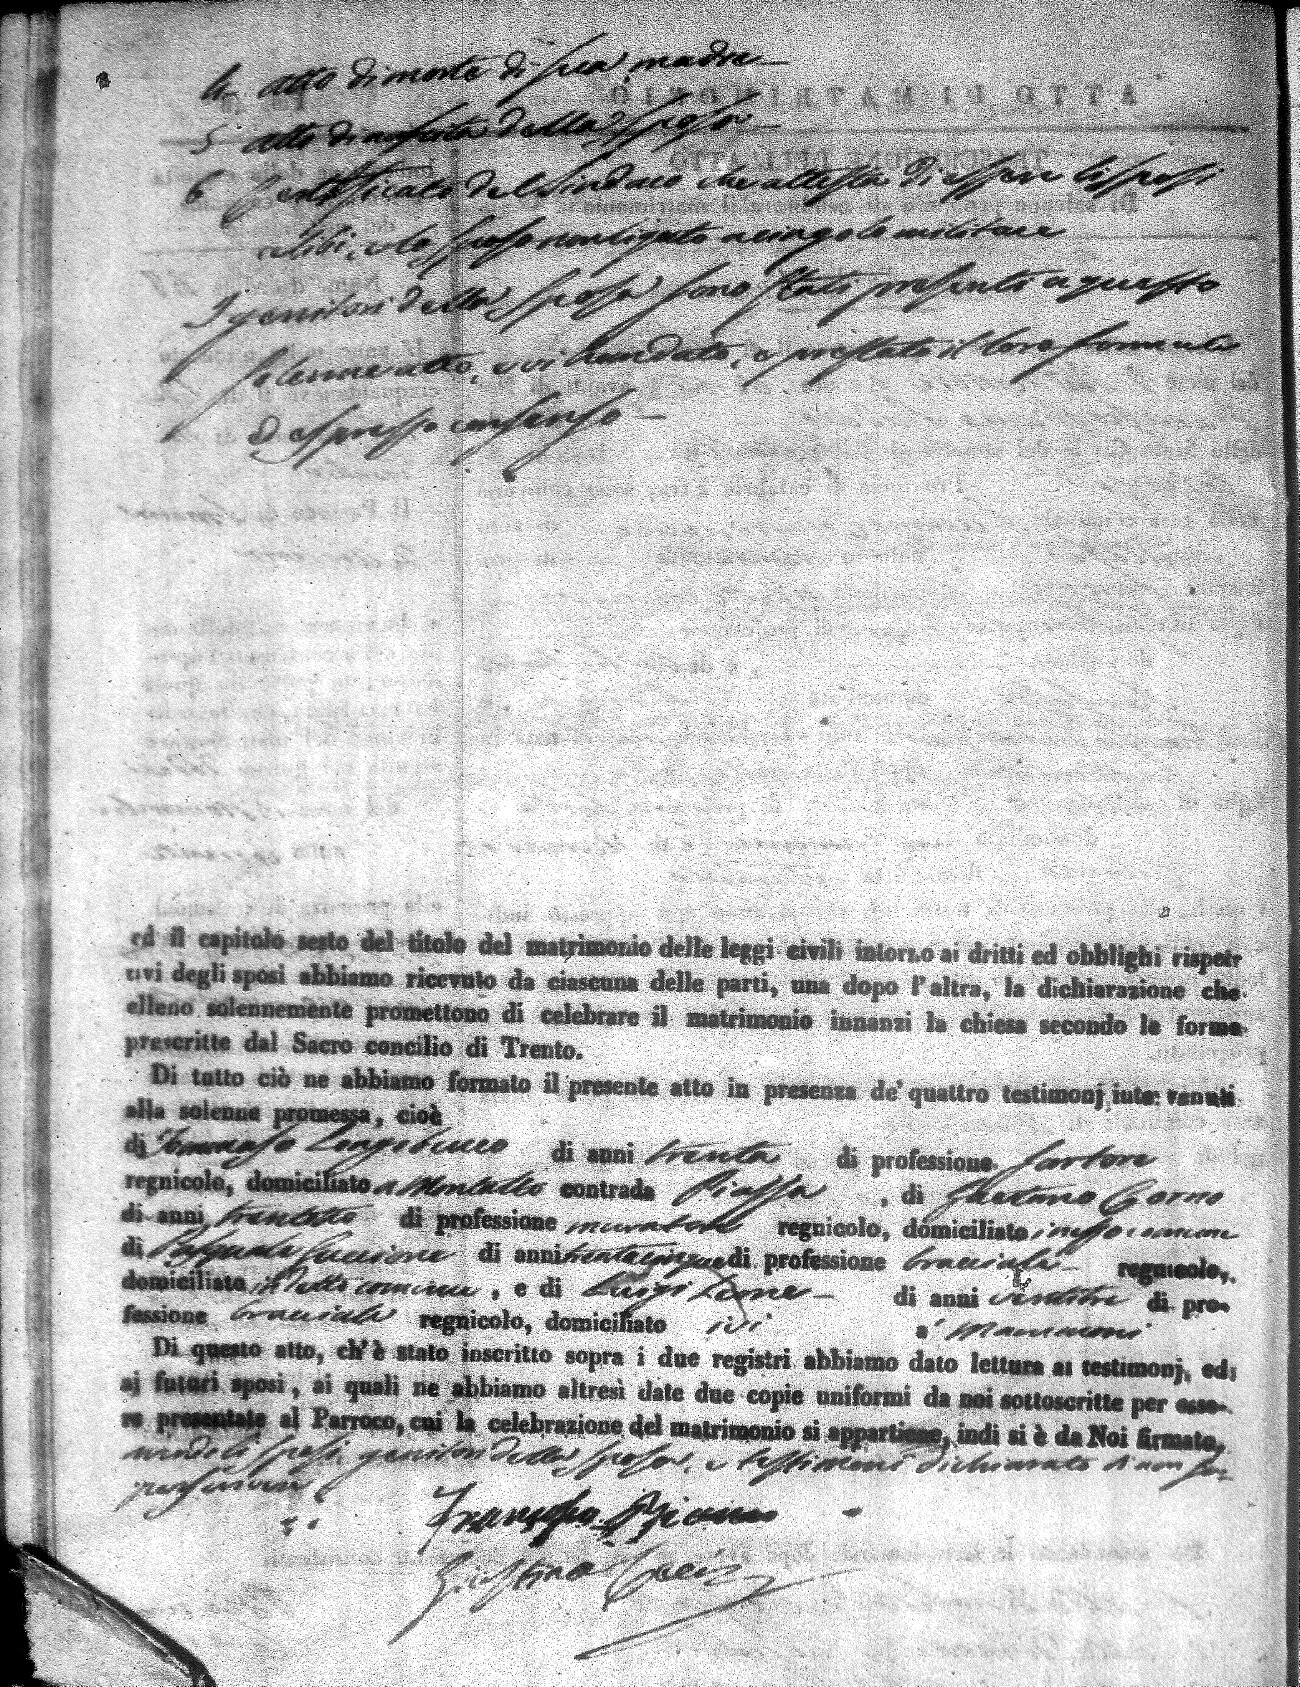 4. atto di morte di sua madre
5 atto di nascita della sposa
6 Certificato del Sindaco che attesta di essere li sposi
celibi, e lo sposo non ligato a cingolo militare
I genitori della sposa sono stati presenti a questo
solenne atto, e vi han dato, e prestato il loro formale
ed espresso consenso
ed il capitolo sesto del titolo del matrimonio delle leggi civili intorno ai dritti ed obblighi rispet-
tivi degli sposi abbiamo ricevuto da ciascuna delle parti, una dopo l'altra, la dichiarazione che
elleno solennemente promettono di celebrare il matrimonio innanzi la chiesa secondo le forme
prescritte dal Sacro concilio di Trento.
Di tutto ciò ne abbiamo formato il presente atto in presenza de' quattro testimonj intervenuti
alla solenne promessa, cioè
di Tommaso di anni trenta di professione sartore
regnicolo, domiciliato a contrada Piazza, di Gaetano
di anni trentotto di professione muratore regnicolo, domiciliato in
di Pasquale di anni trentacinque di professione bracciale regnicolo,
domiciliato in detto comune, e di Luigi Leone di anni ventitre di pro-
fessione bracciale regnicolo, domiciliato ivi
Di questo atto, ch'è stato inscritto sopra i due registri abbiamo dato lettura ai testimonj, ed
ai futuri sposi, ai quali ne abbiamo altresì date due copie uniformi da noi sottoscritte per esse-
re presentate al Parroco, cui la celebrazione del matrimonio si appartiene, indi si è da Noi firmato,
li sposi, genitori della sposa, e testimoni dichiarato di non saper
scrivere
Francesco
Giustino